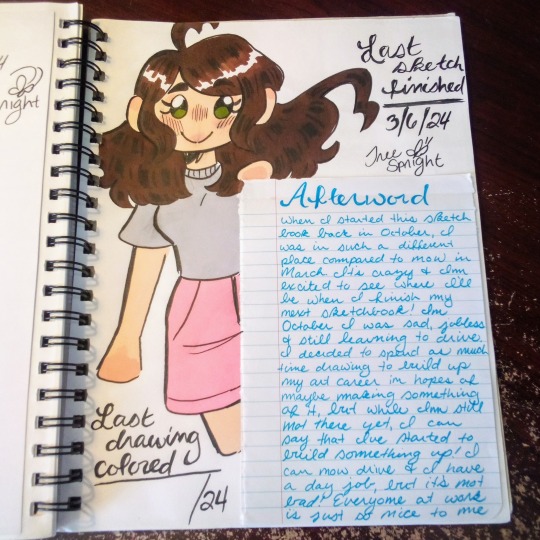 night
Last
sketch
finished
3/6/24
Tree
Spright
Afterword
When I started this sketch
book back in October, I
was in such a different
place compared to now in
March. It's crazy & I'm
excited to see where I'll
be when I finish my
next sketchbook! In
October I was sad, jobless
& still learning to drive.
I decided to spend as much
time drawing to build up
my art career in hopes of
maybe making something
of it, but while I'm still
not there yet, I can
say that I've started to
build something up! I
can now drive & I have
a day job, but it's not
bad! Everyone at work
is just so nice to me
Last
drawing
colored
/24